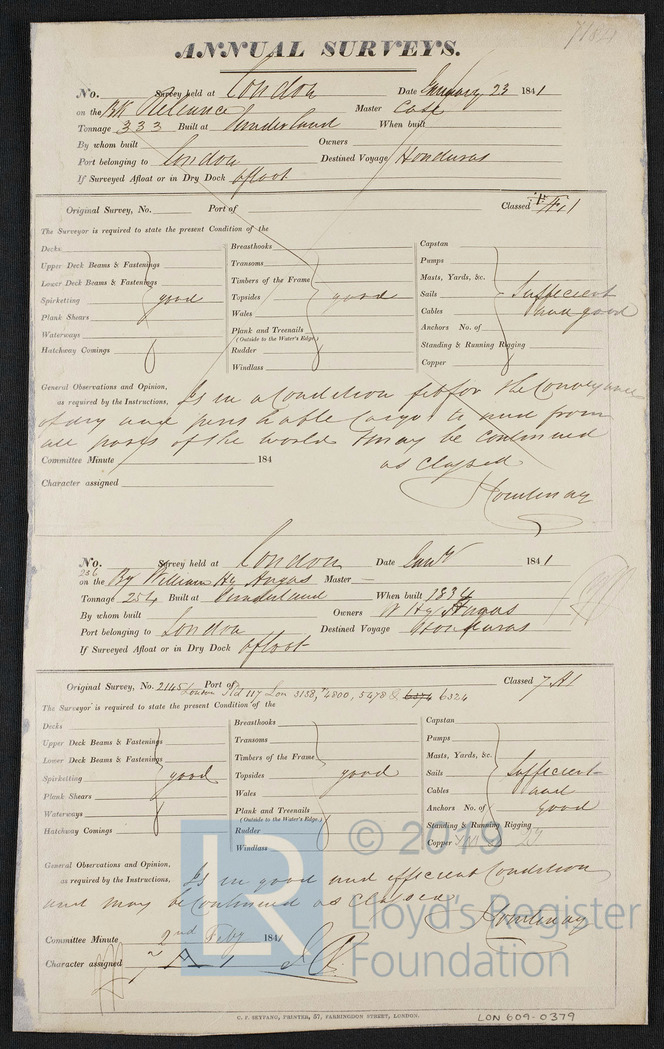 ANNUAL SURVEYS.
No. Survey held at London Date January 23 1841
on the Bk Reliance Master Case
Tonnage 333 Built at Sunderland When built
By whom built Owners
Port belonging to London Destined Voyage Honduras
If Surveyed Afloat or in Dry Dock afloat
Original Survey, No. Port of Classed Æ 1
The Surveyor is required to state the present Condition of the
Decks Breasthooks Capstan
Upper Deck Beams & Fastenings Transoms Pumps
Lower Deck Beams & Fastenings Timbers of the Frame Masts, Yards, &c.
Spirketting good Topsides good Sails Sufficient
Plank Shears Wales Cables and good
Waterways Plank and Treenails Anchors No. of
(Outside to the Water's Edge)
Hatchway Comings Rudder Standing & Running Rigging
Windlass Copper
General Observations and Opinion, Is in a Condition fit for the Conveyance
as required by the Instructions,
of dry and perishable Cargo to and from
all parts of the world & may be continued
Committee Minute 184 as Classed
Character assigned Courtenay
No. Survey held at London Date Jany 1841
236
on the Bg William Hy Angas Master
Tonnage 254 Built at Sunderland When built 1834
By whom built Owners W Hy Angas
Port belonging to London Destined Voyage Honduras
If Surveyed Afloat or in Dry Dock afloat
Original Survey, No. 2145 Port of London Classed 7 A 1
117 Lon 3158, 4800, 5478 & 6374 6324
The Surveyor is required to state the present Condition of the
Decks Breasthooks Capstan
Upper Deck Beams & Fastenings Transoms Pumps
Lower Deck Beams & Fastenings Timbers of the Frame Masts, Yards, &c.
Spirketting good Topsides good Sails Sufficient
Plank Shears Wales Cables and
Waterways Plank and Treenails Anchors No. of good
(Outside to the Water's Edge.)
Hatchway Comings Rudder Standing & Running Rigging
Windlass Copper
General Observations and Opinion, Is in good and efficient Condition
as required by the Instructions,
and may be Continued as classed
Courtenay
Committee Minute 2nd Feby 1841
Character assigned A 1
C. F. SEYFANG, PRINTER, 57, FARRINGDON STREET, LONDON.
LON 609-0379
LR © 2019
Lloyd's Register
Foundation